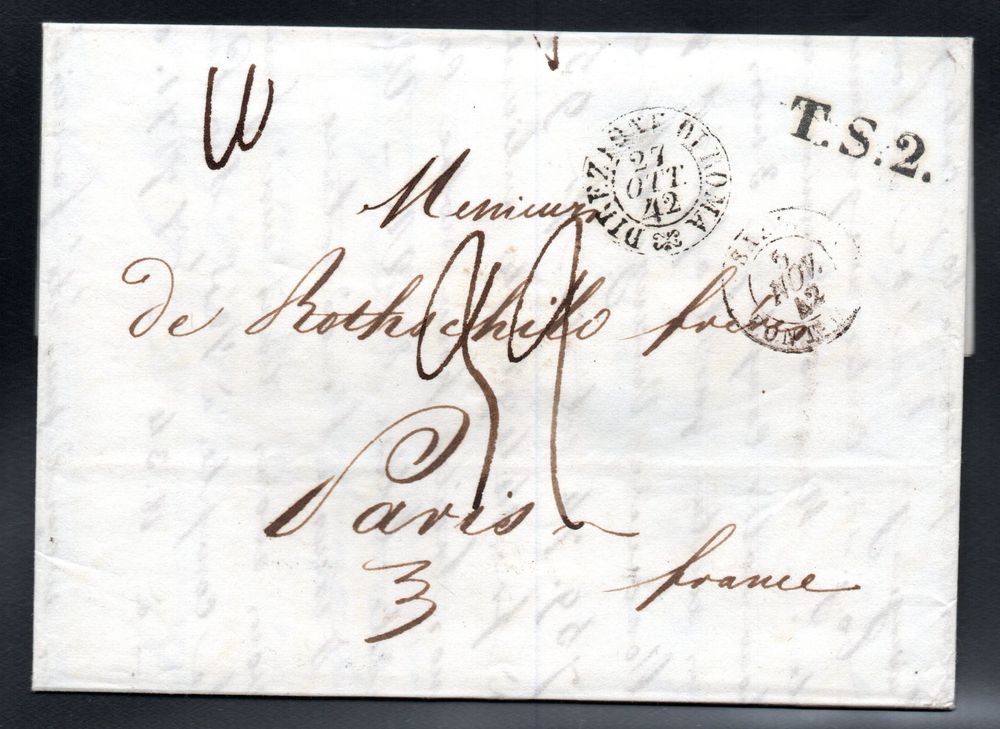 T.S.2.
DIREZIONE DI ROMA
27
OTT.
42
Messieurs
2
NOV.
42
de Rothschild frères
Paris
3
france